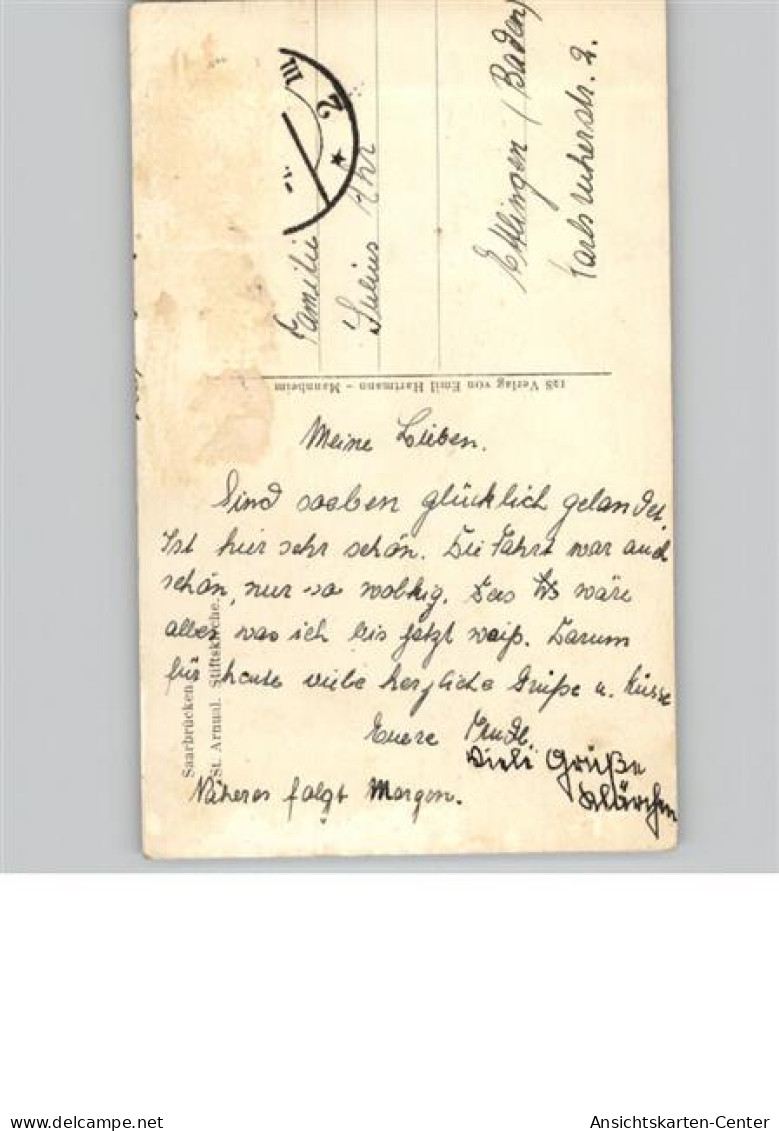 Familie
Julius Ihr
Ettlingen (Baden)
Karlsruherstr. 2.
128 Verlag von Emil Hartmann - Mannheim
2
III
Meine Lieben.
Sind soeben glücklich gelandet.
Ist hier sehr schön. Die Fahrt war auch
schön, nur so wolkig. Das wäre
alles was ich bis jetzt weiß. Darum
für heute viele herzliche Grüße u. Küsse
Euere
Viele Grüße
Klärchen
Näheres folgt Morgen.
Saarbrücken
St. Arnual. Stiftskirche.
delcampe.net
Ansichtskarten-Center